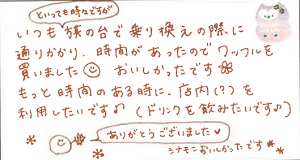 といっても時々ですが
いつも旗の台で乗り換えの際に
通りかかり、時間があったのでワッフルを
買いました おいしかったです
もっと時間のある時に、店内(?)を
利用したいです♪ (ドリンクを飲みたいです♪)
ありがとうございました♥
シナモンおいしかったです